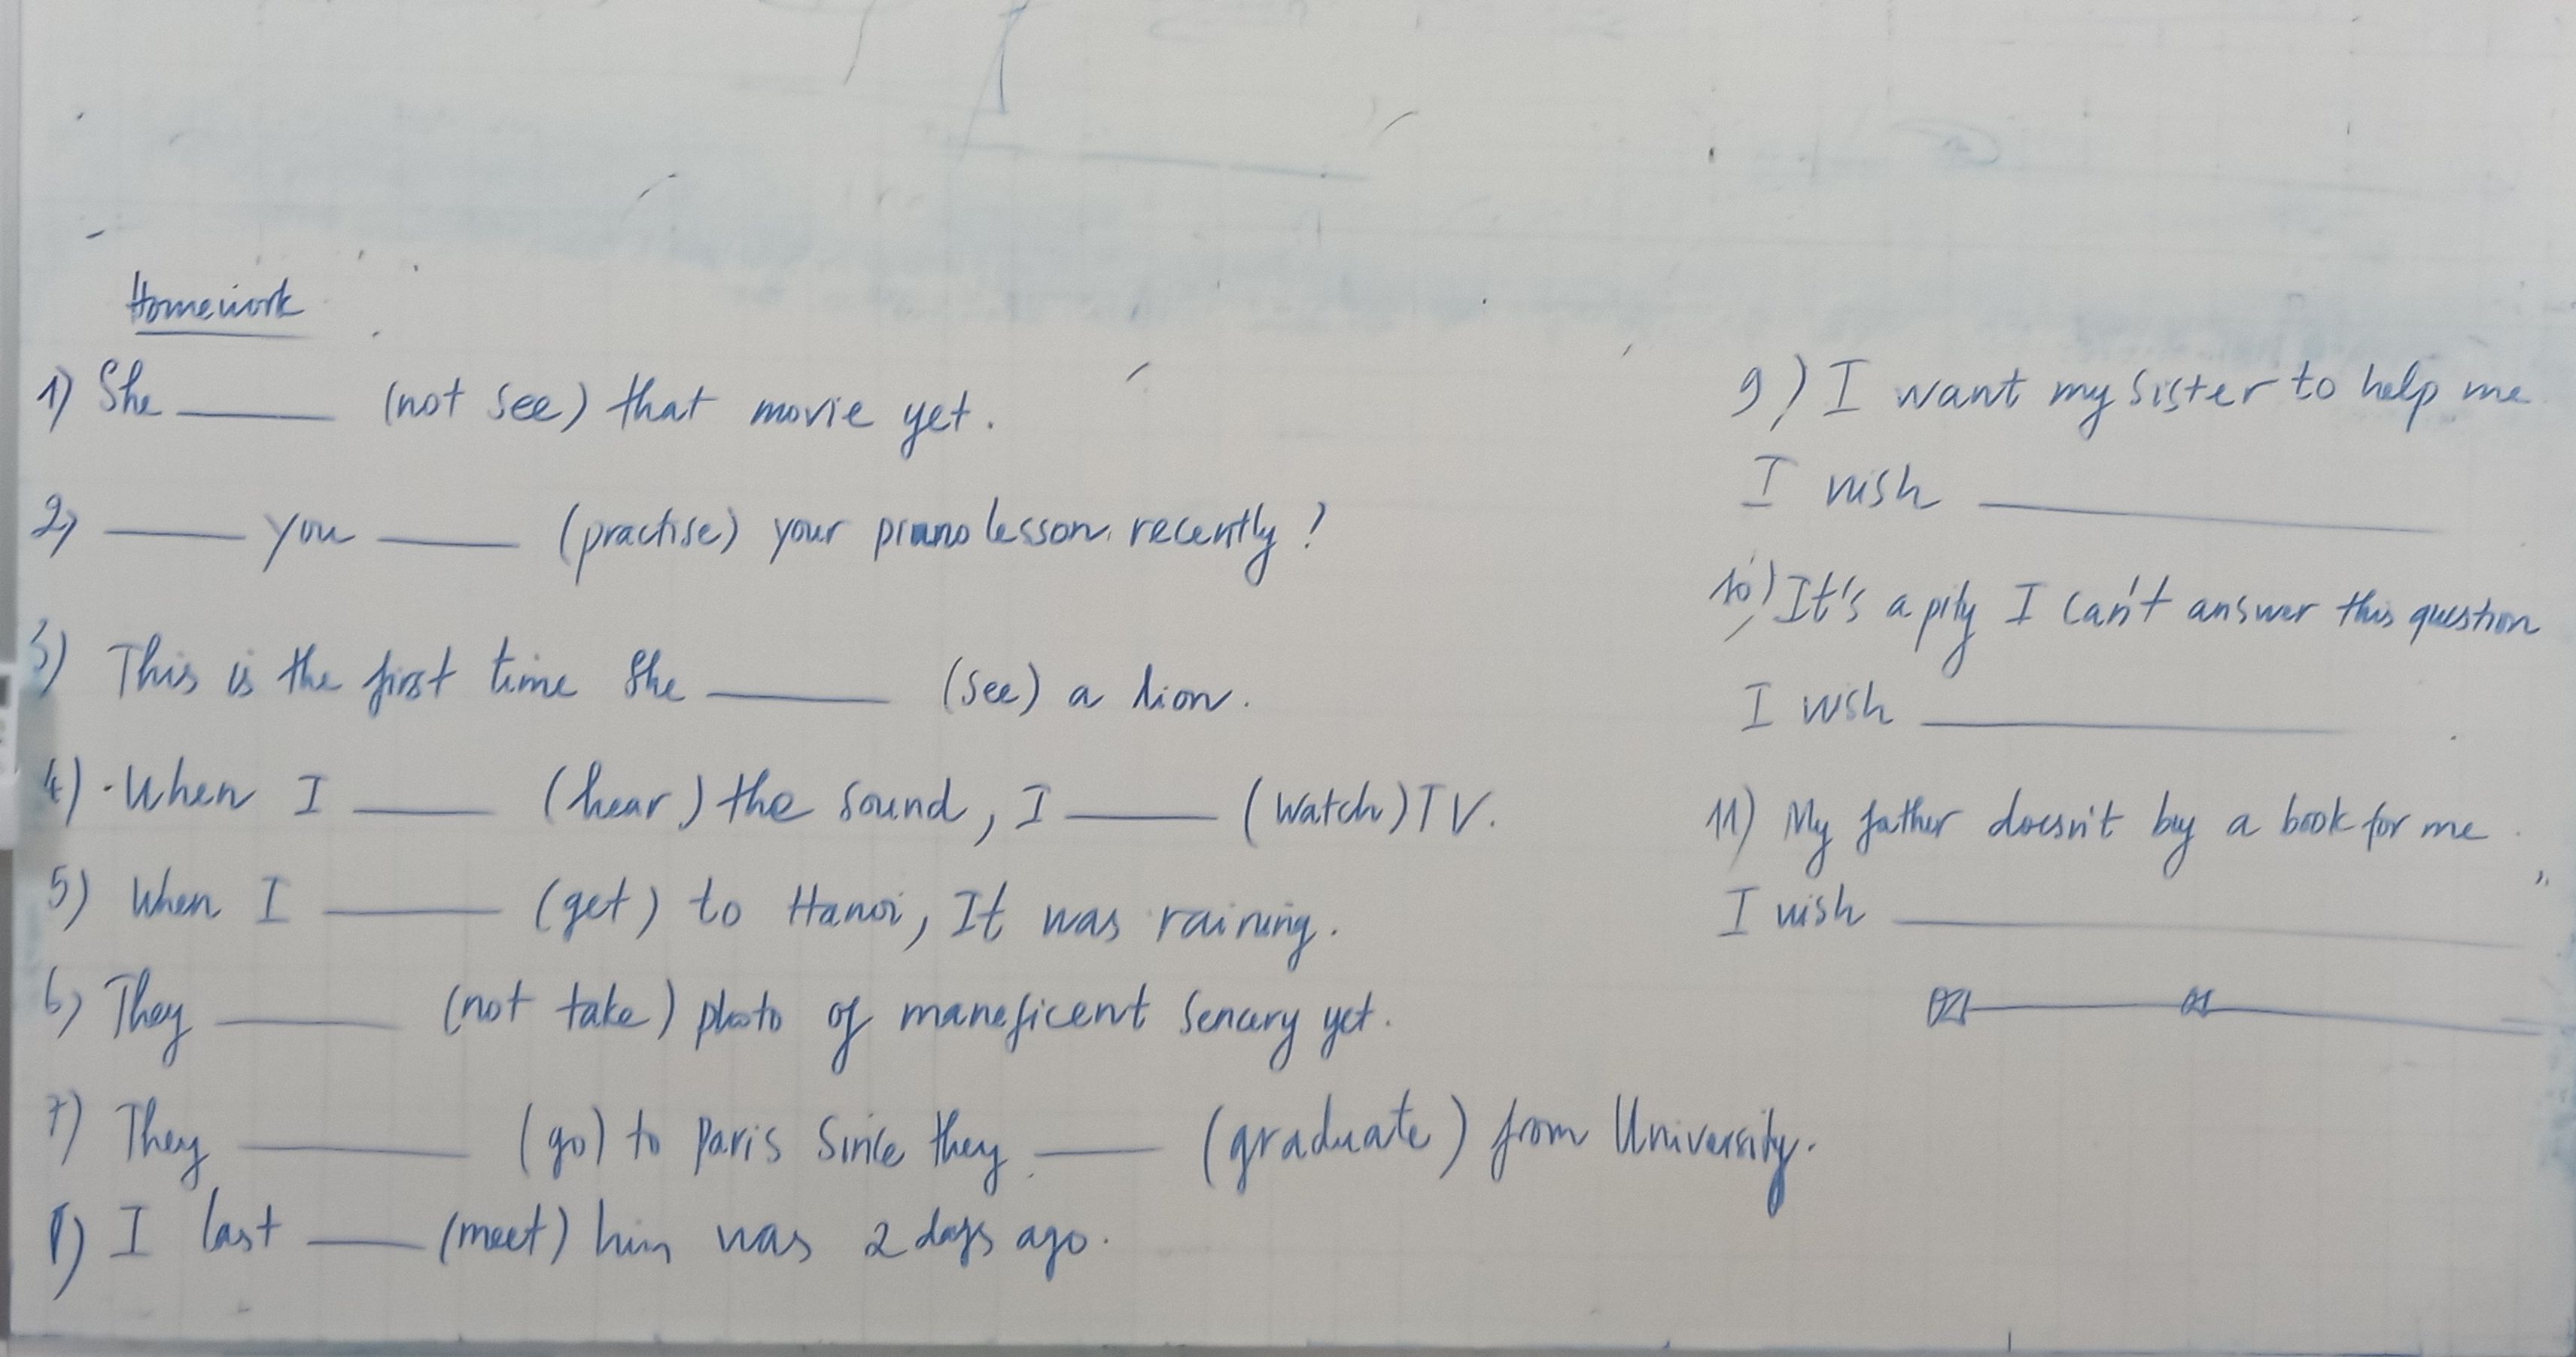 Homework
1) She ______ (not see) that movie yet.
2) ______ you ______ (practise) your piano lesson recently?
3) This is the first time she ______ (see) a lion.
4) When I ______ (hear) the sound, I ______ (watch) TV.
5) When I ______ (get) to Hanoi, It was raining.
6) They ______ (not take) photo of maneficent senery yet.
7) They ______ (go) to Paris Since they ______ (graduate) from University.
8) I last ______ (meet) him was 2 days ago.
9) I want my sister to help me
I wish ______
10) It's a pity I can't answer this question
I wsh ______
11) My father doesn't by a book for me.
I wish ______